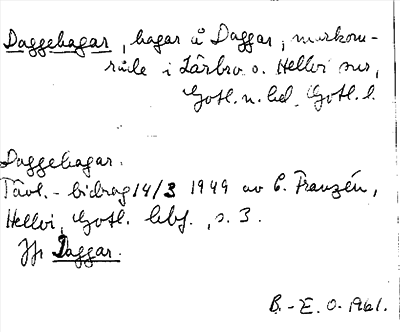 Daggehagar, hagar å Daggar, myrkom-
råde i Lärbro o. Hellvi snr,
Gotl. n. hd, Gotl. l.
Daggehagar.
Tävl.-bidrag 14/3 1949 av C. Franzén,
Hellvi, Gotl. , s. 3.
Jfr Daggar.
B.-E. O. 1961.